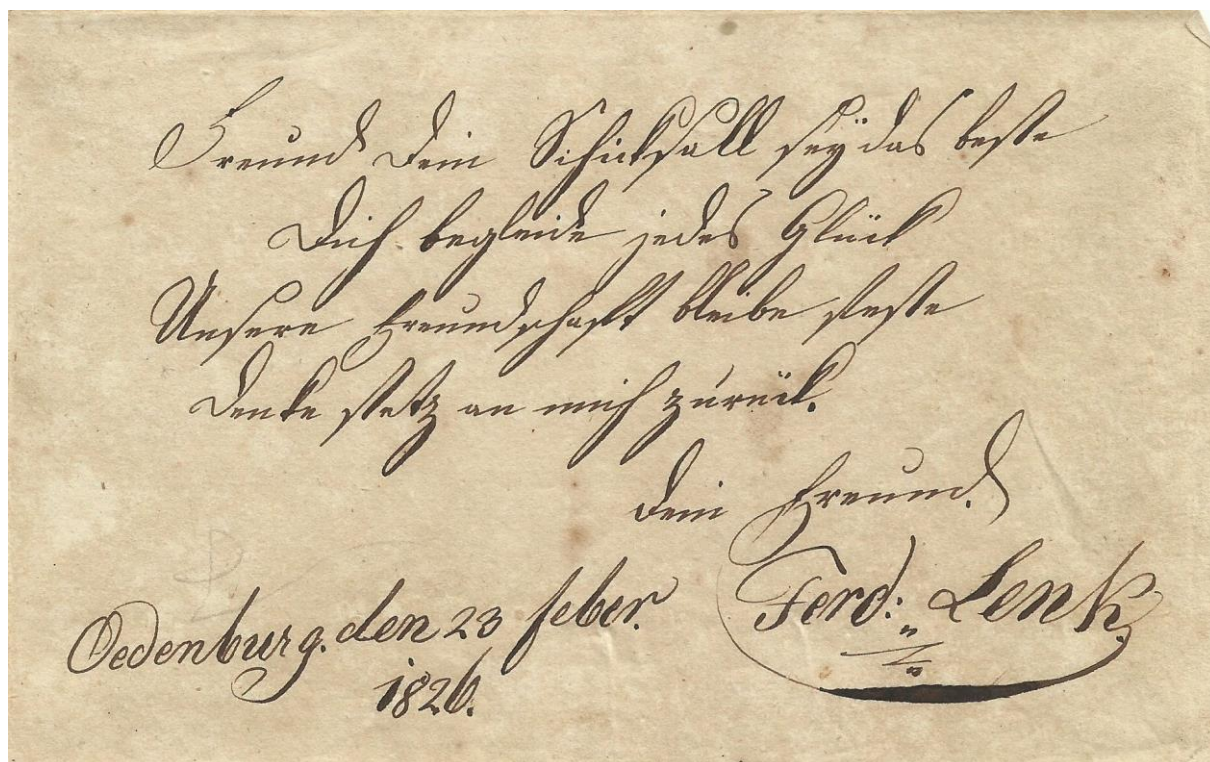 Freund Dein Schicksall seÿ das beste
Dich begleide jedes Glück
Unsere Freundschaft bleibe feste
Denke stetz an mich zurück.
Dein Freund.
Ferd: Lenk
Oedenburg. den 23 feber.
1826.